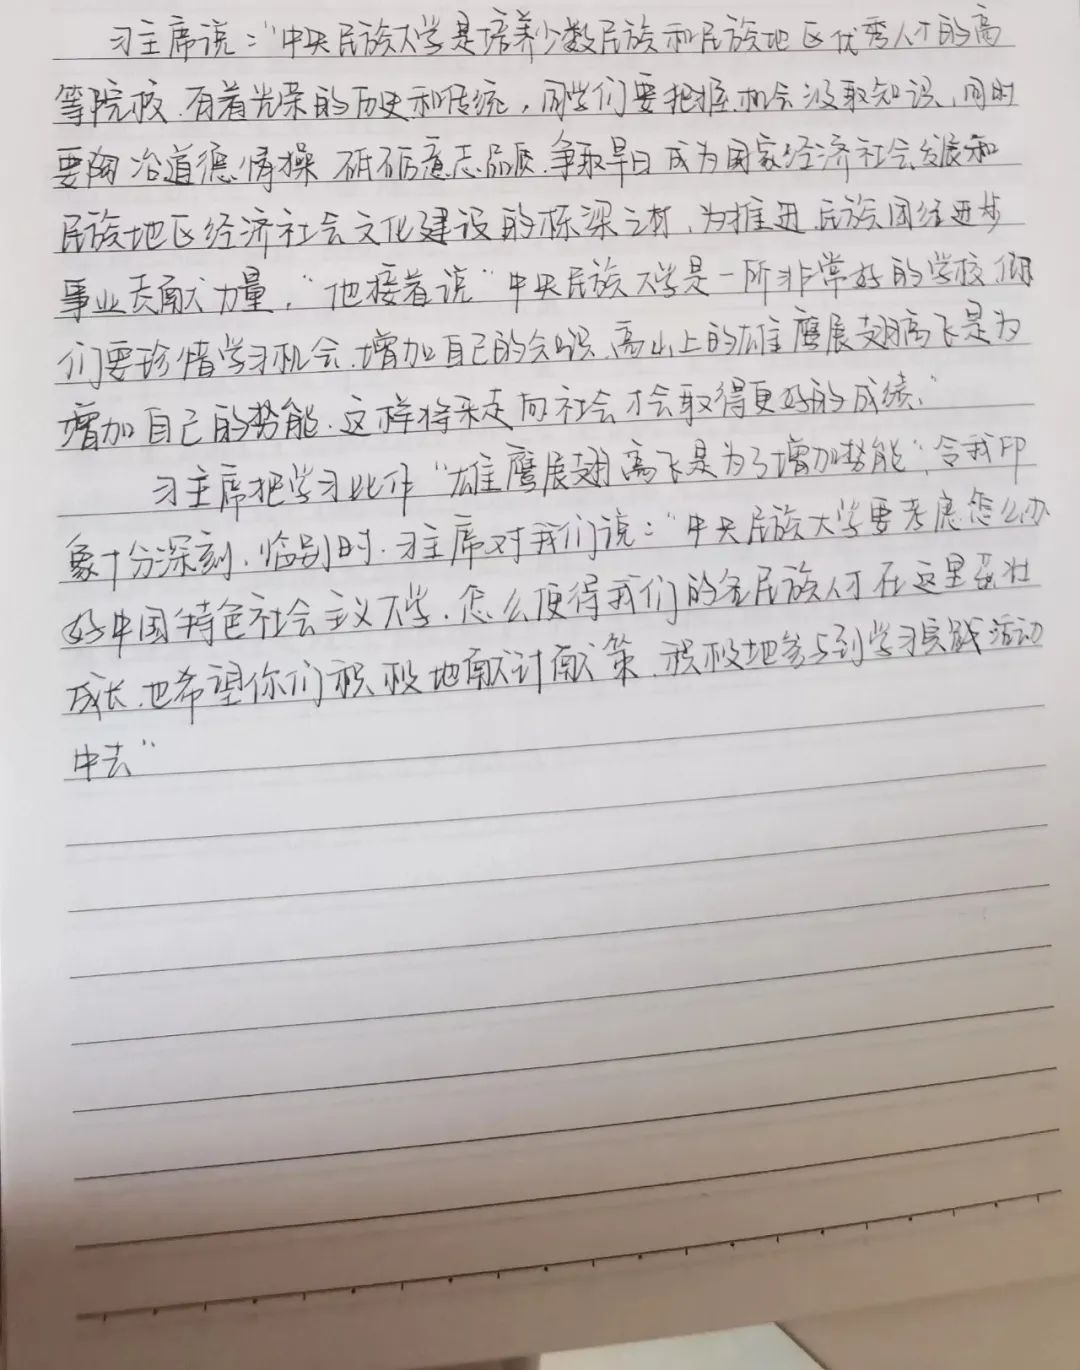 习主席说：“中央民族大学是培养少数民族和民族地区优秀人才的高
等院校.有着光荣的历史和传统，同学们要把握机会汲取知识、同时
要陶冶道德情操 砥砺意志品质.争取早日成为国家经济社会发展和
民族地区经济社会文化建设的栋梁之材、为推进民族团结进步
事业贡献力量，“他接着说“中央民族大学是一所非常好的学校
们要珍惜学习机会.增加自己的知识、高山上的雄鹰展翅高飞是为
增加自己的势能.这样将来走向社会才会取得更好的成绩.”
习主席把学习比作“雄鹰展翅高飞是为了增加势能”，令我印
象十分深刻.临别时.习主席对我们说：“中央民族大学要考虑怎么办
好中国特色社会主义大学.怎么使得我们的各民族人才在这里茁壮
成长.也希望你们积极地献计献策.积极地参与到学习实践活动
中去”